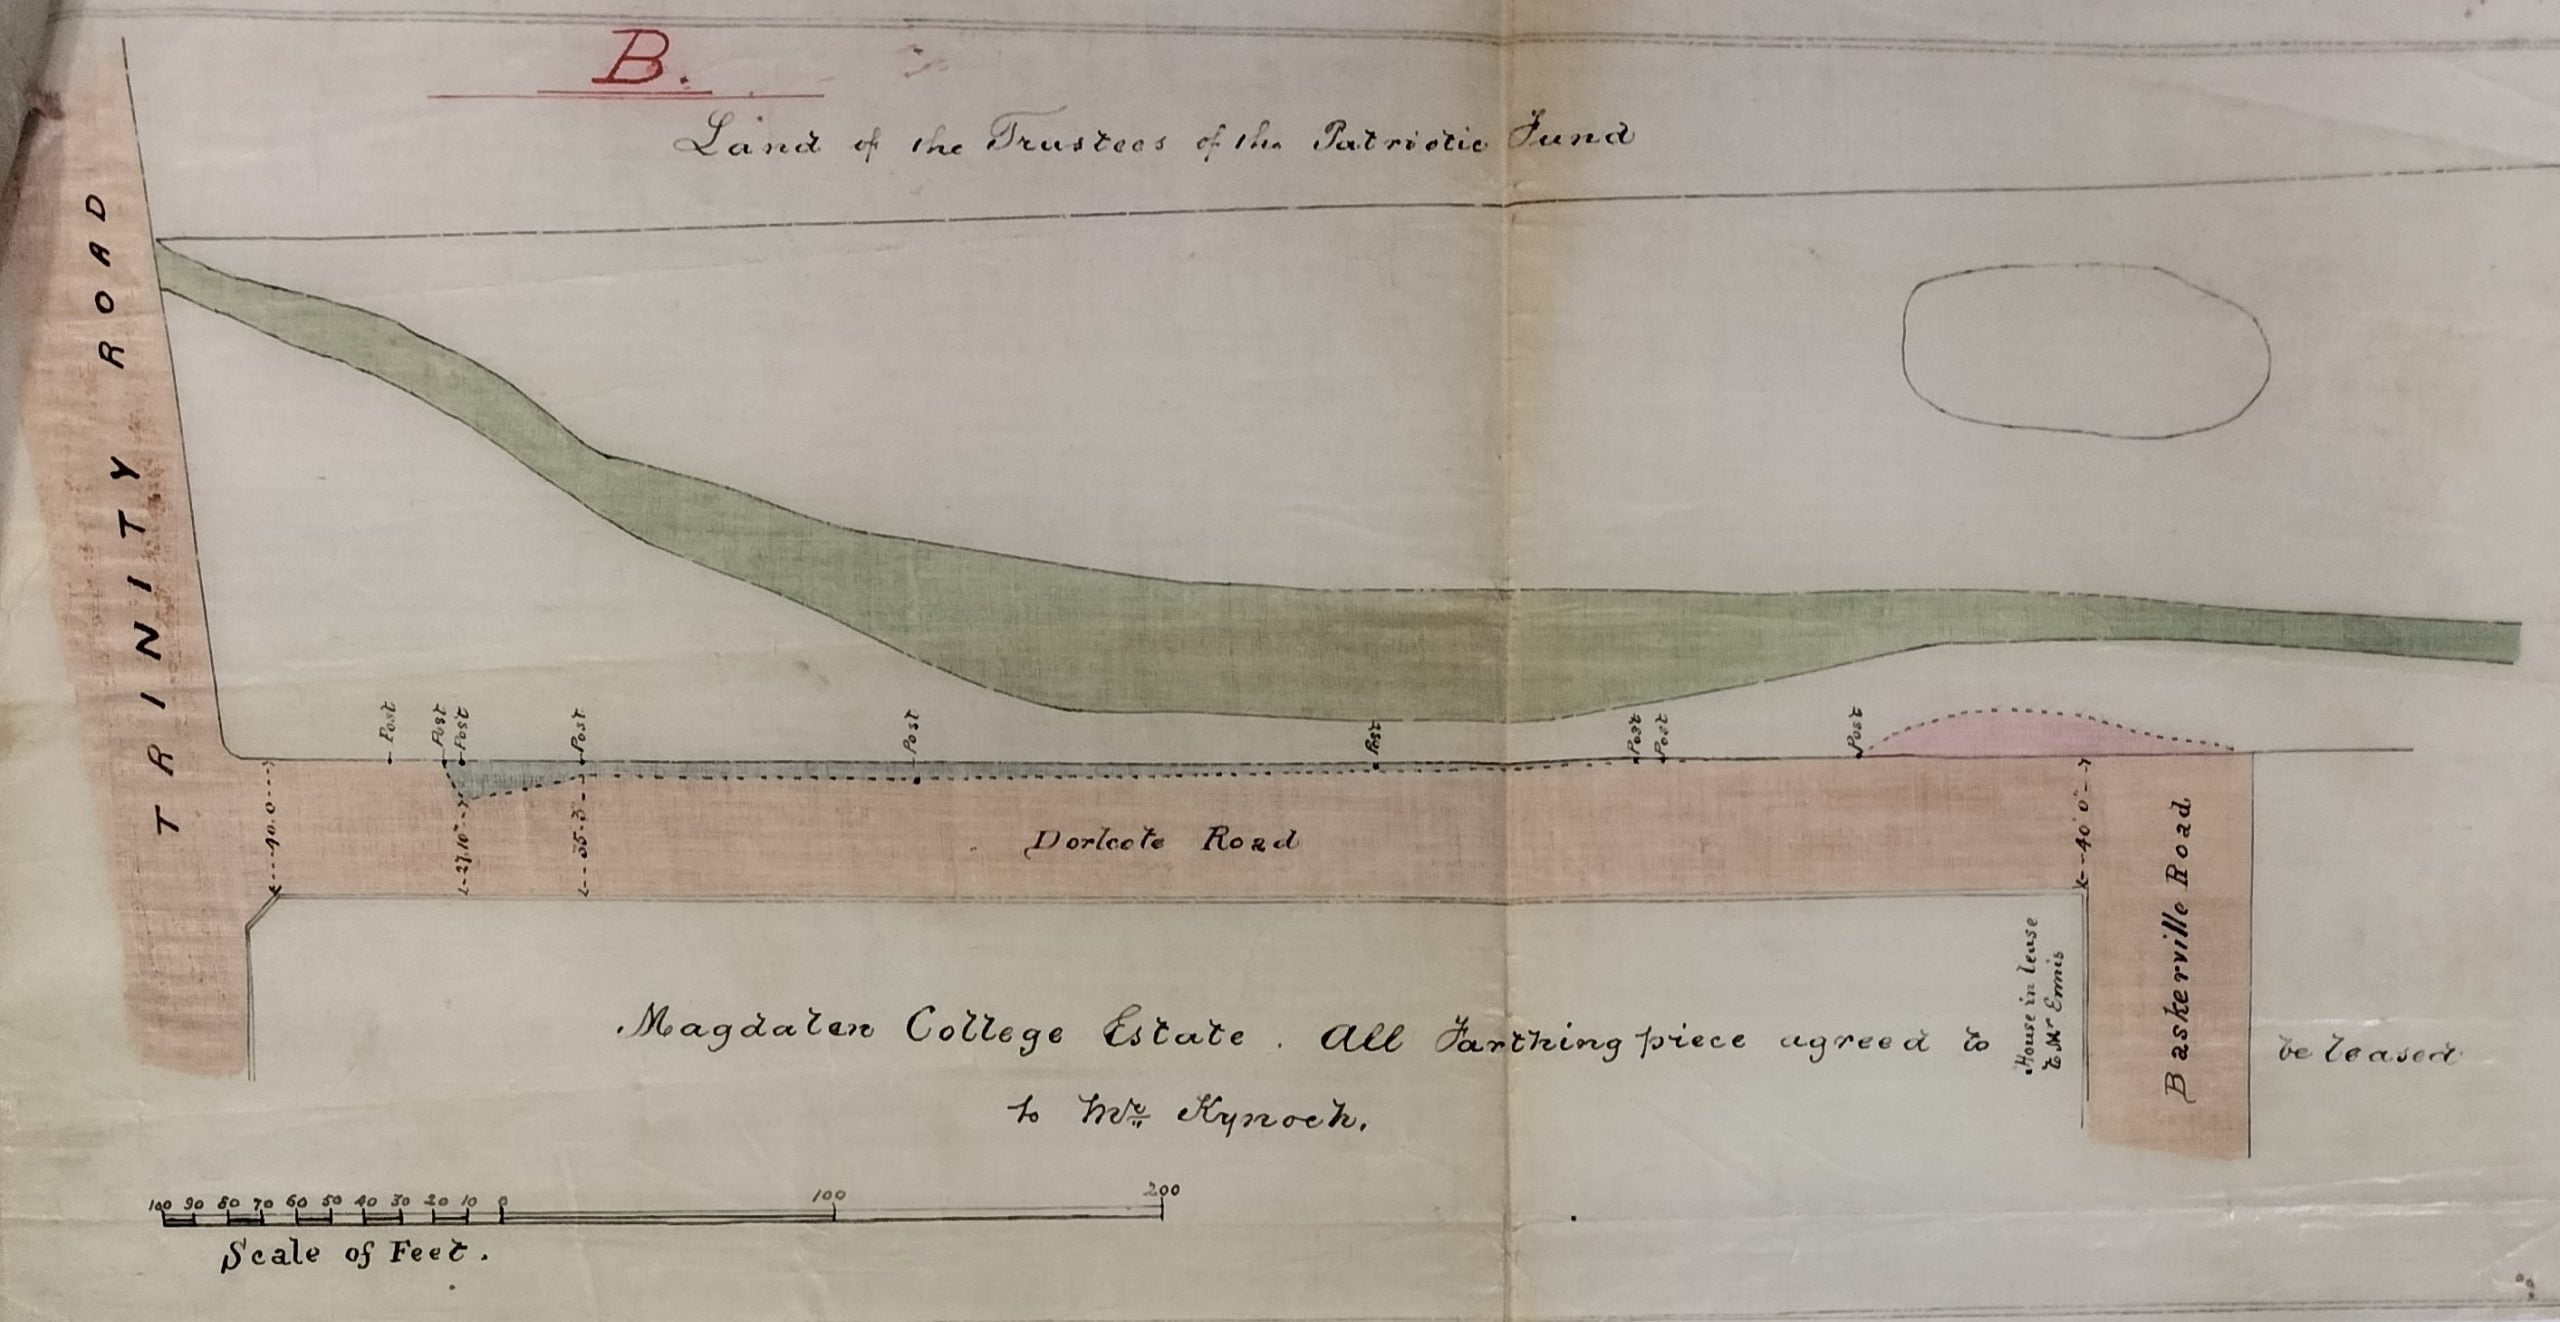 B.
Land of the Trustees of the Patriotic Fund
TRINITY ROAD
Post
Post
Post
Post
Post
Post
Post
Post
Post
40.0
27.10"
35.3"
Dorlcote Road
40' 0"
Baskerville Road
House in lease
to Mr Ennis
Magdalen College Estate. All Farthing piece agreed to be leased
to Mr Kynoch.
100 90 80 70 60 50 40 30 20 10 0 100 200
Scale of Feet.